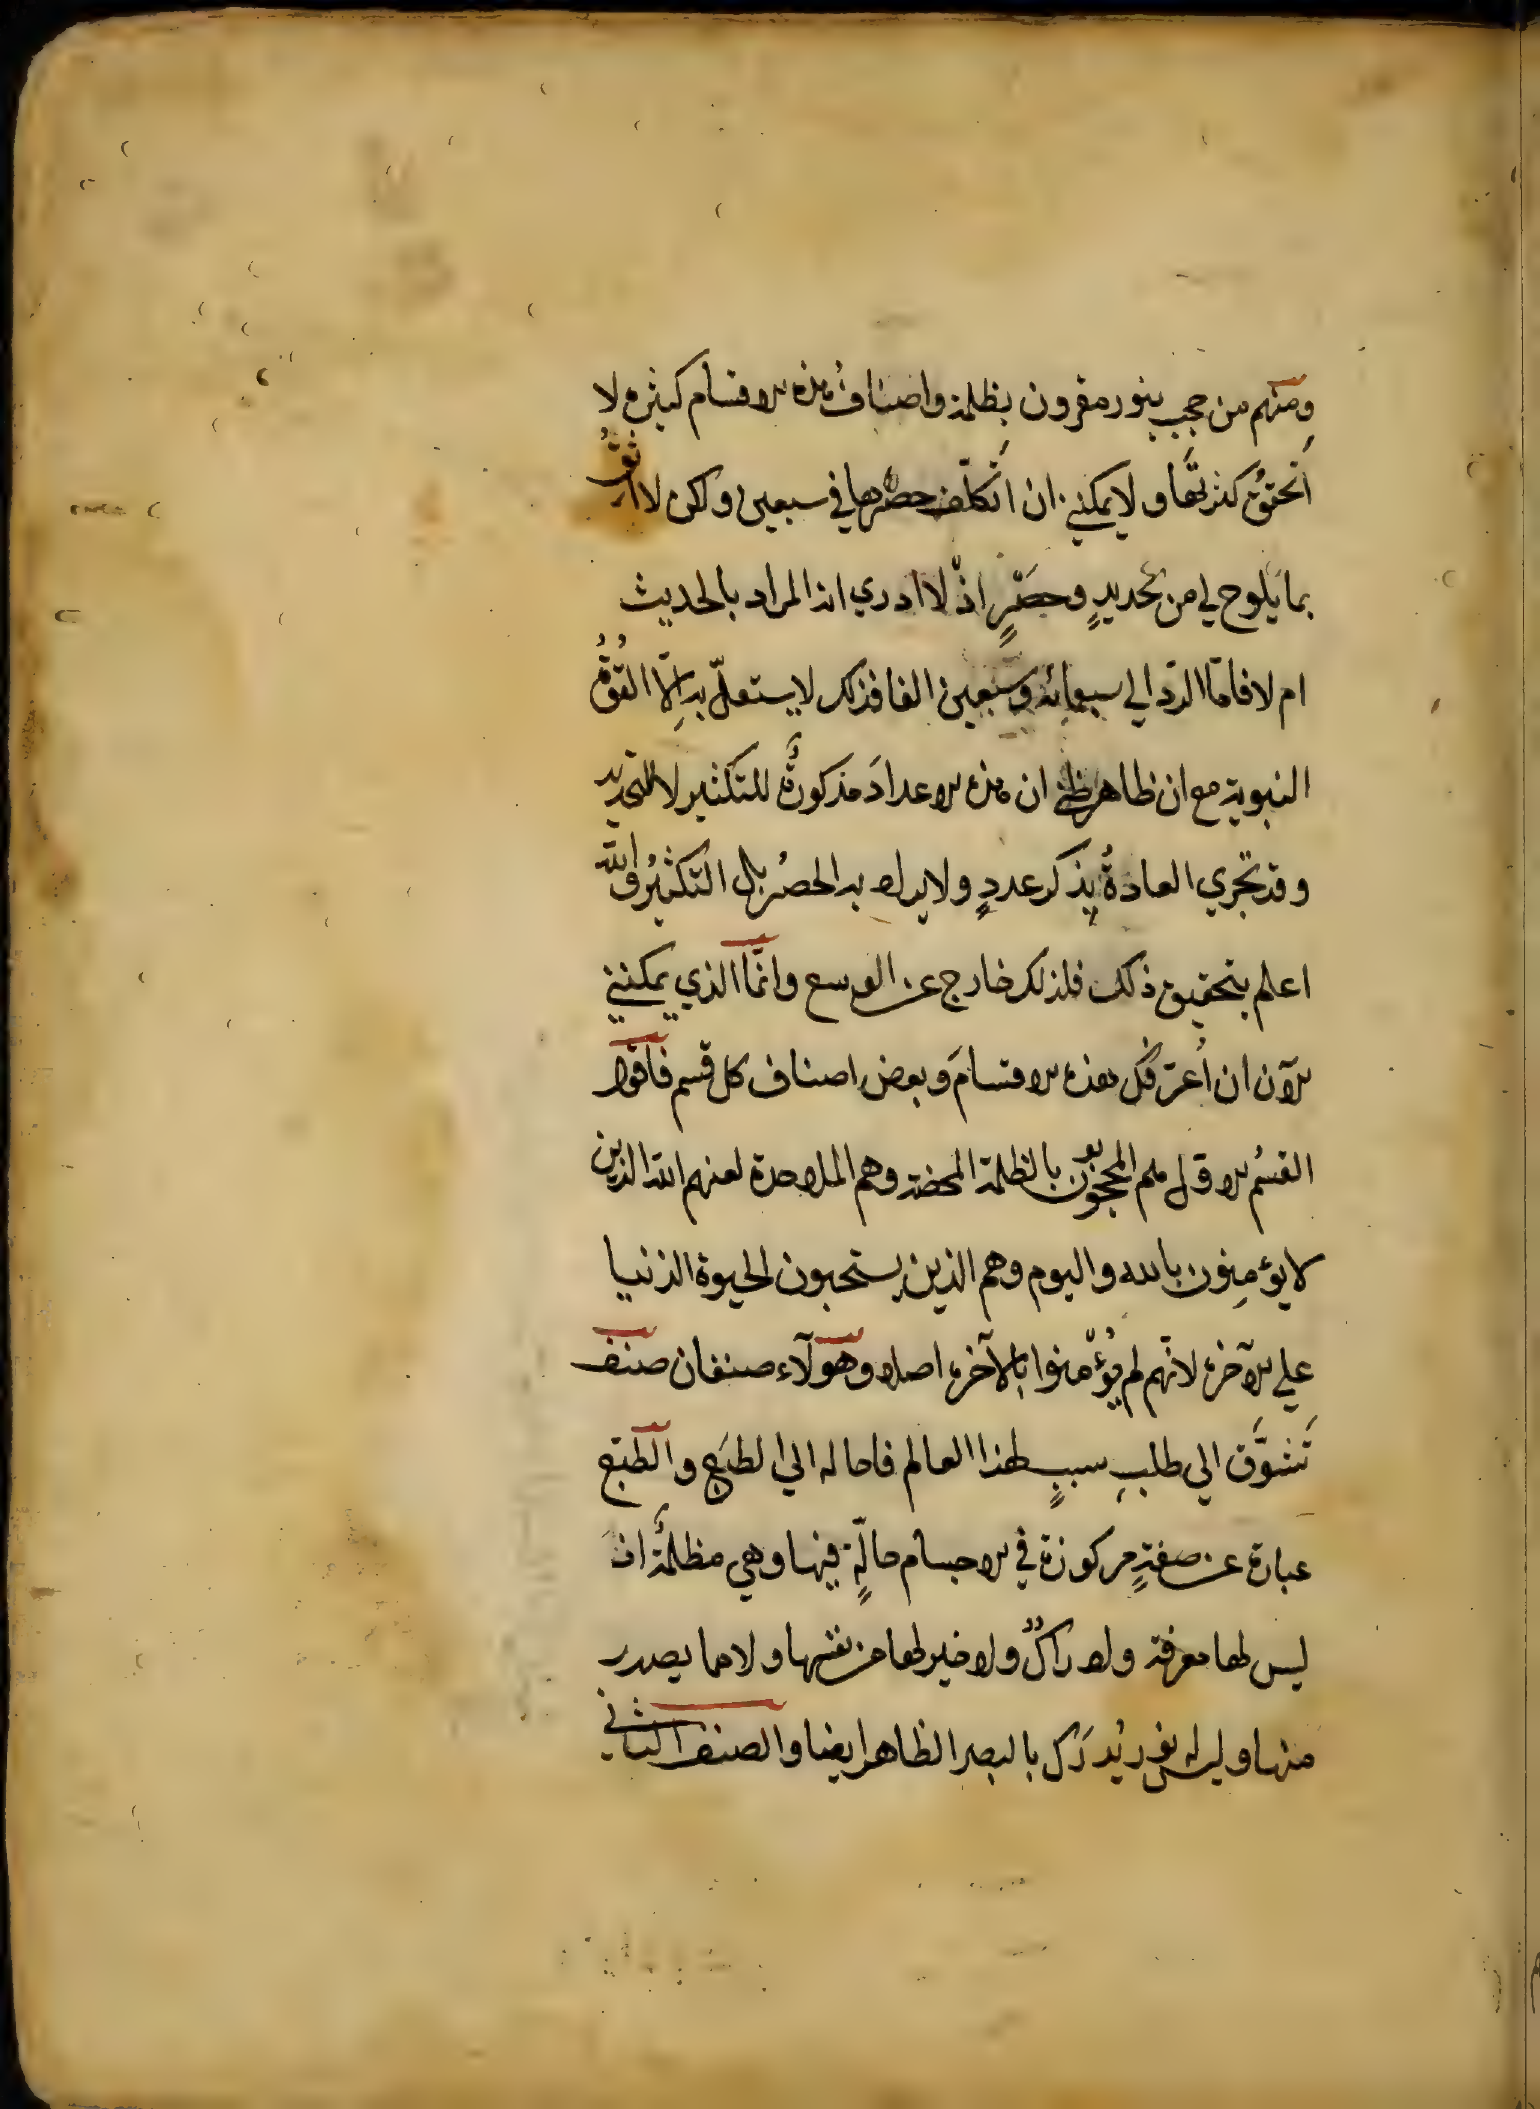 ومنهم من حجب بنور مقرون بظلمة واصناف هذه الاقسام كثيرة لا
اتحقق كثرتها ولا يمكنني ان اتكلف حصرها في سبعين ولكن لا اثق
بما يلوح لي من تحديدٍ وحصرٍ اذ لا ادري انه المراد بالحديث
ام لا فامّا الردّ الي سبعمائة وسبعين الفا فذلك لا يستقلّ به الّا القوة
النبوية مع ان ظاهر ظني ان هذه الاعداد مذكورةٌ للتكثير لا للتحديد
وقد تجري العادةُ بذكر عددٍ ولا يراد به الحصرُ بل التكثيرُ والله
اعلم بتحقيق ذلك فلذلك خارج عن الوسع وانّما الذي يمكنني
الآن ان اُعرّفك هذه الاقسامَ وبعض اصناف كل قسم فاقول
القسمُ الاول هم المحجوبون بالظلمة المحضة وهم الملاحدة لعنهم الله الذين
لا يؤمنون بالله واليوم وهم الذين يستحبون الحيوة الدنيا
علي الآخرة لانّهم لم يؤمنوا بالآخرة اصلا وهولآء صنفان صنف
تَشوَّق الي طلبِ سببٍ لهذا العالم فاحاله الي الطبَعِ والطبع
عبارة عن صفةٍ مركوزة في الاجسام حالّةٍ فيها وهي مظلمةٌ اذ
ليس لها معرفة وادراكٌ ولا خبر لها من نفسها ولا مما يصدر
منها وليس له نور يُدرَك بالبصر الظاهر ايضا والصنف الثاني